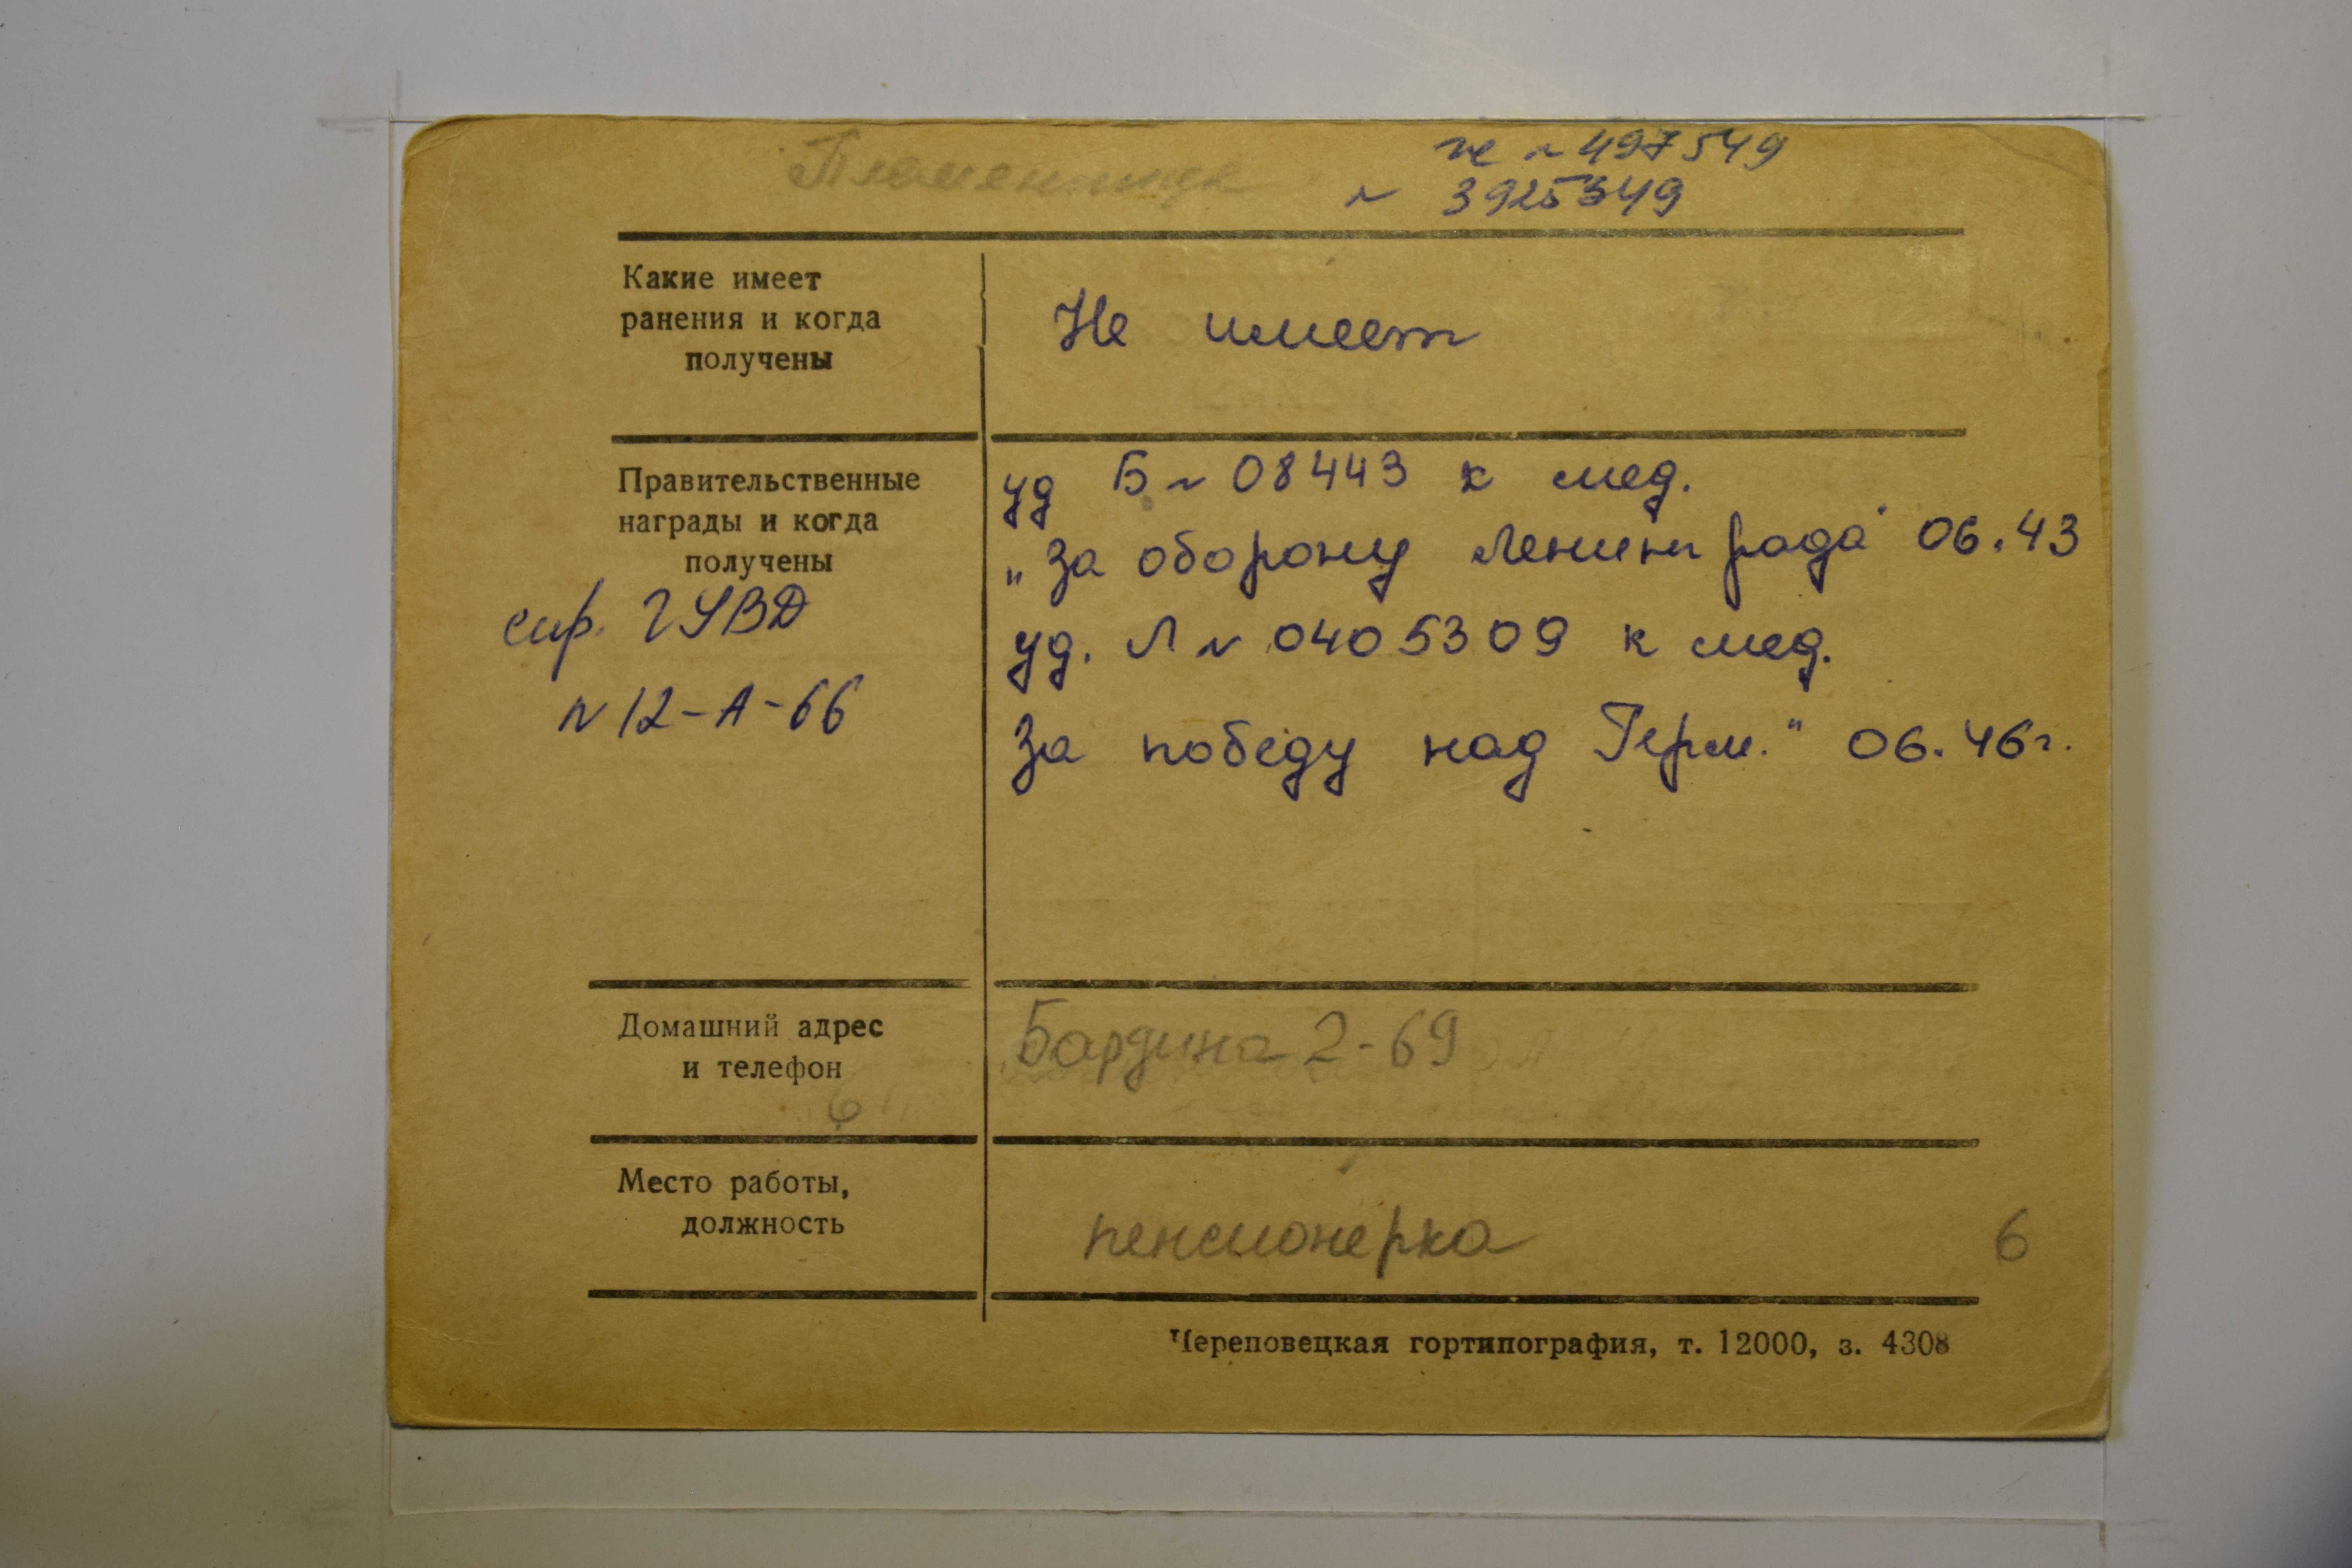 же № 497549
№ 3925349
Какие имеет
ранения и когда
получены
Не имеет
Правительственные
награды и когда
получены
спр. ГУВД
№ 12-А-66
уд Б № 08443 к мед.
„За оборону Ленинграда" 06.43
уд. Л № 0405309 к мед.
За победу над Герм." 06.46г.
Домашний адрес
и телефон
Бардина 2-69
Место работы,
должность
пенсионерка
6
Череповецкая гортипография, т. 12000, з. 4308